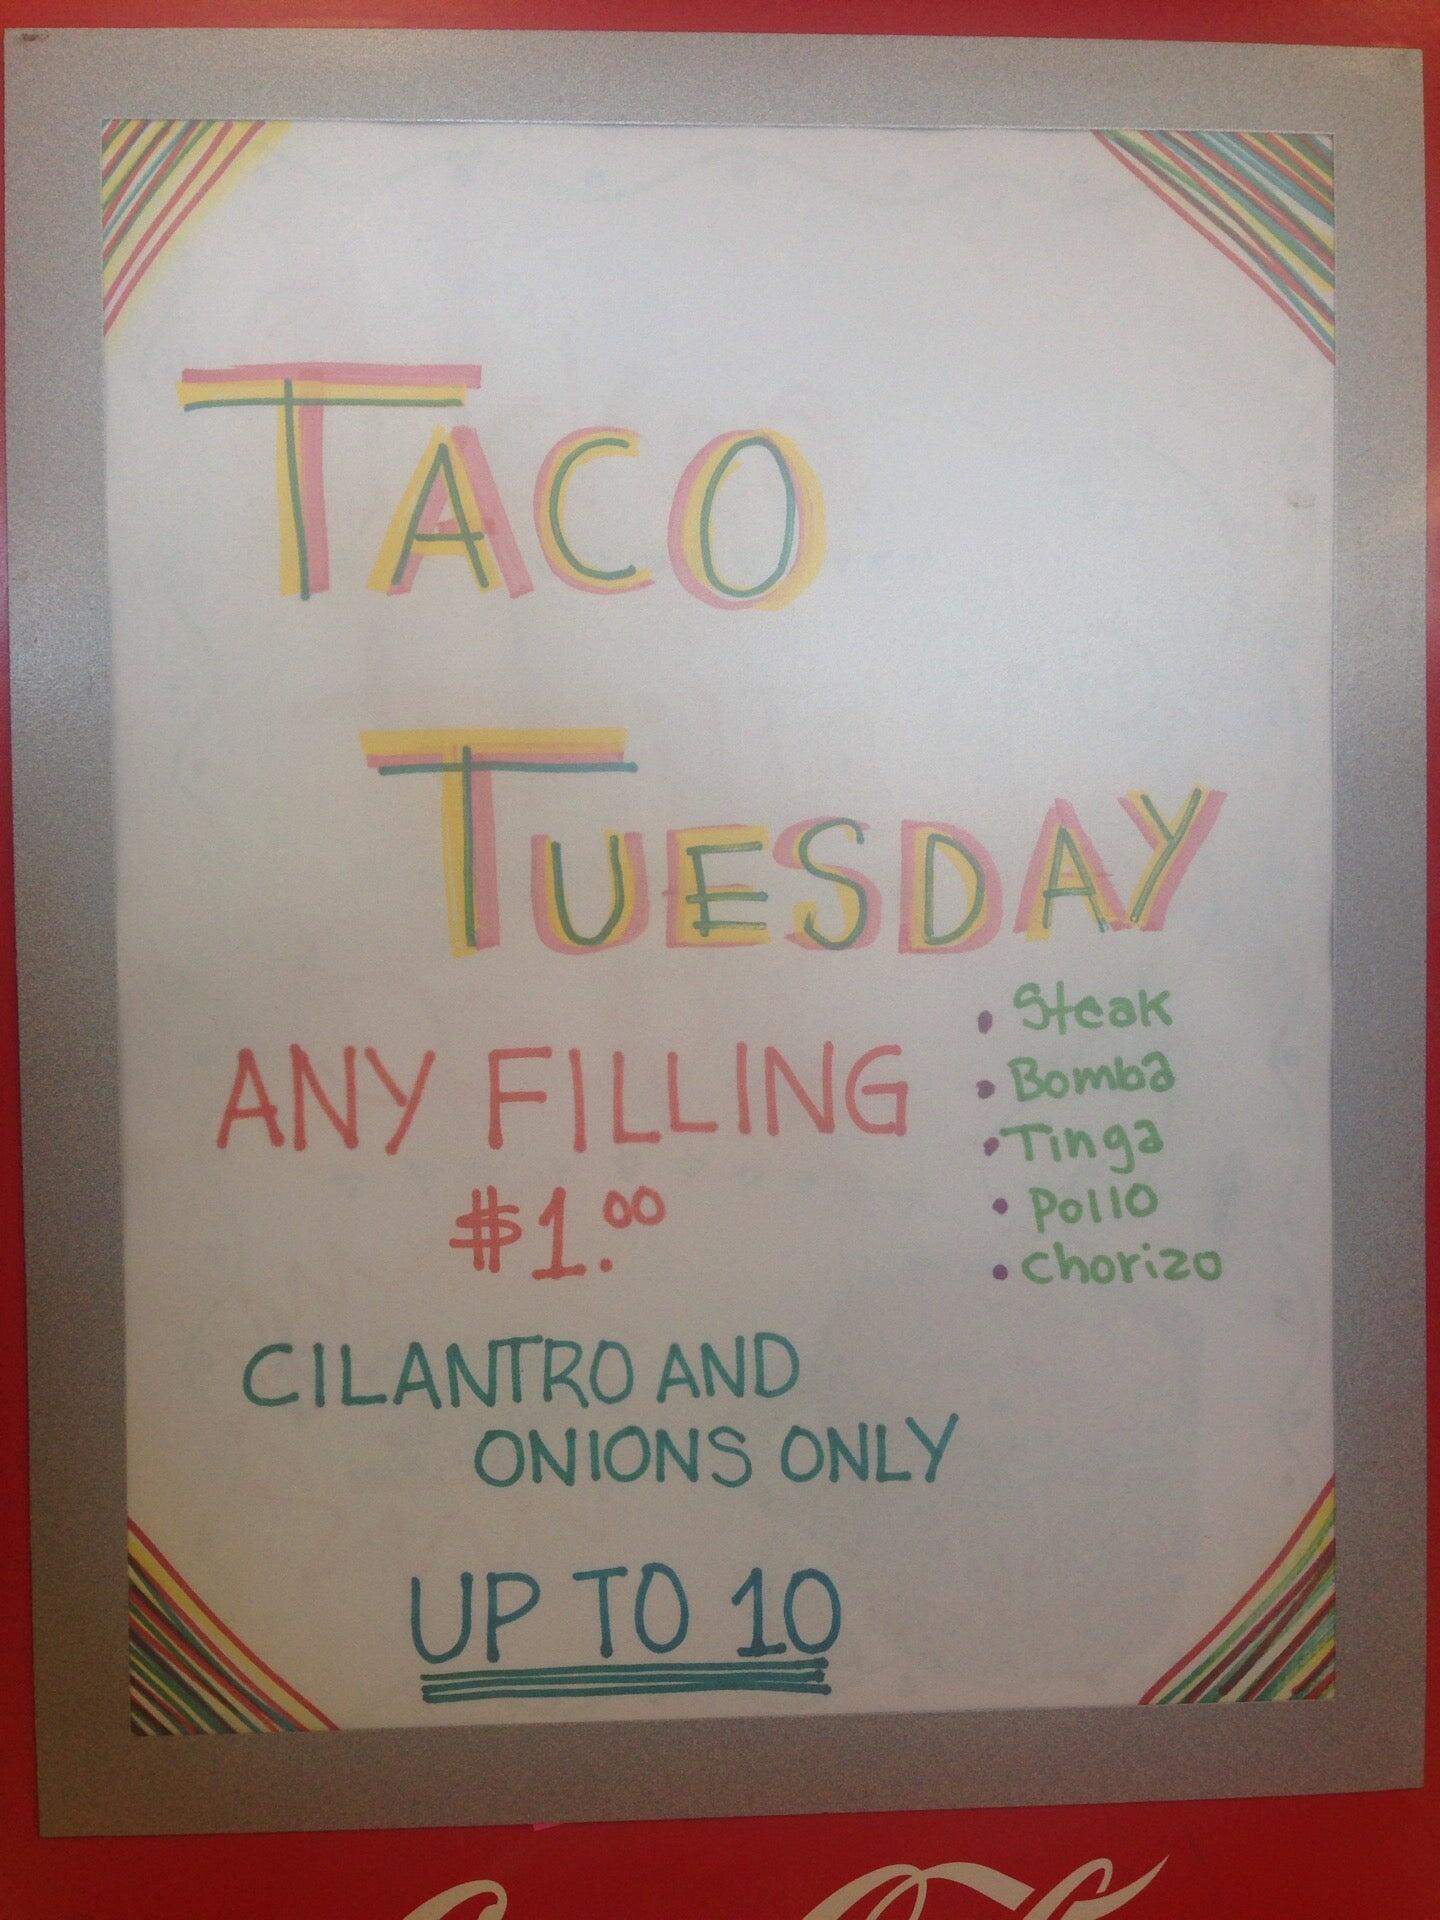 TACO
TUESDAY
ANY FILLING
$1.00
• Steak
• Bomba
• Tinga
• Pollo
• Chorizo
CILANTRO AND
ONIONS ONLY
UP TO 10